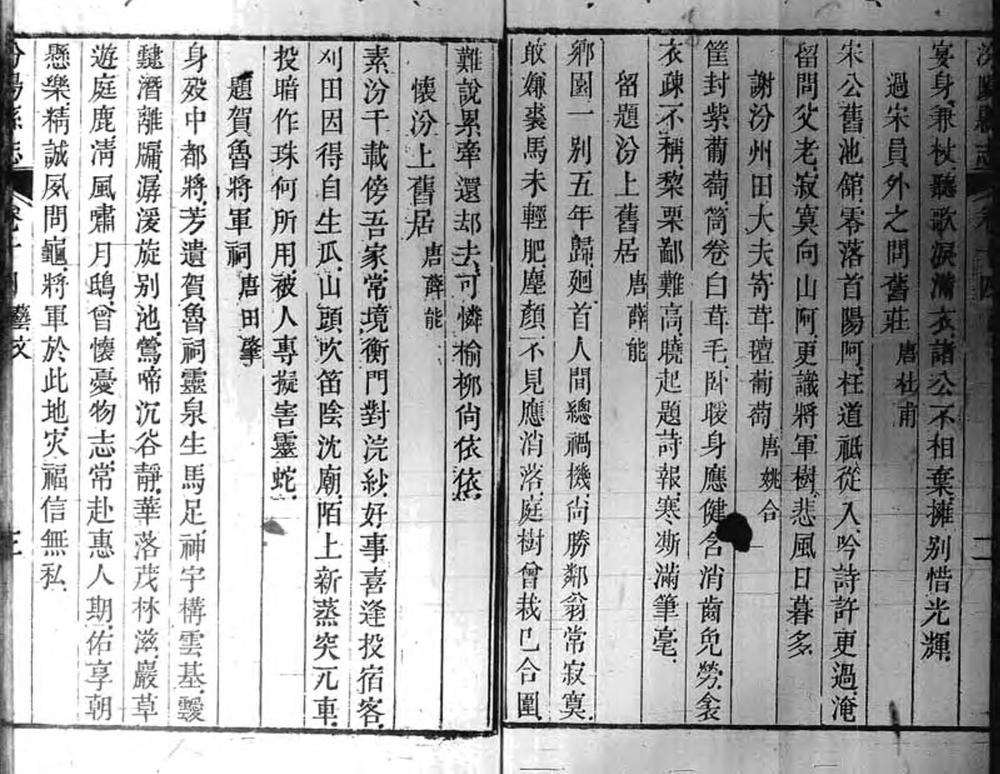 汾陽縣志 卷十四
宴身兼杖聽歌淚滿衣諸公不相棄擁別惜光輝
過宋員外之問舊莊 唐杜甫
宋公舊池館零落首陽阿枉道祗從入吟詩許更過淹
留問父老寂寞向山阿更識將軍樹悲風日暮多
謝汾州田大夫寄茸氊葡萄 唐姚合
筐封紫葡萄筒卷白茸毛卧暖身應健含消齒免勞衾
衣疎不稱梨栗鄙難高曉起題詩報寒澌滿筆毫
留題汾上舊居 唐薛能
鄉園一別五年歸廻首人間總禍機尙勝鄰翁常寂寞
敢嫌裘馬未輕肥塵顏不見應消落庭樹曾栽巳合圍
難說累牽還却去可憐榆柳尙依依
懷汾上舊居 唐薛能
素汾千載傍吾家常境衡門對浣紗好事喜逢投宿客
刈田因得自生瓜山頭吹笛陰沈廟陌上新蒸突兀車
投暗作珠何所用被人專擬害靈蛇
題賀魯將軍祠 唐田肇
身歿中都將芳遺賀魯祠靈泉生馬足神宇構雲基靉
靆潛離牖潺湲旋別池鶯啼沉谷靜華落茂林滋巖草
遊庭鹿淸風嘯月鴟曾懷憂物志常赴惠人期佑享朝
懸樂精誠夙問龜將軍於此地灾福信無私
汾陽縣志 卷十四 藝文 三